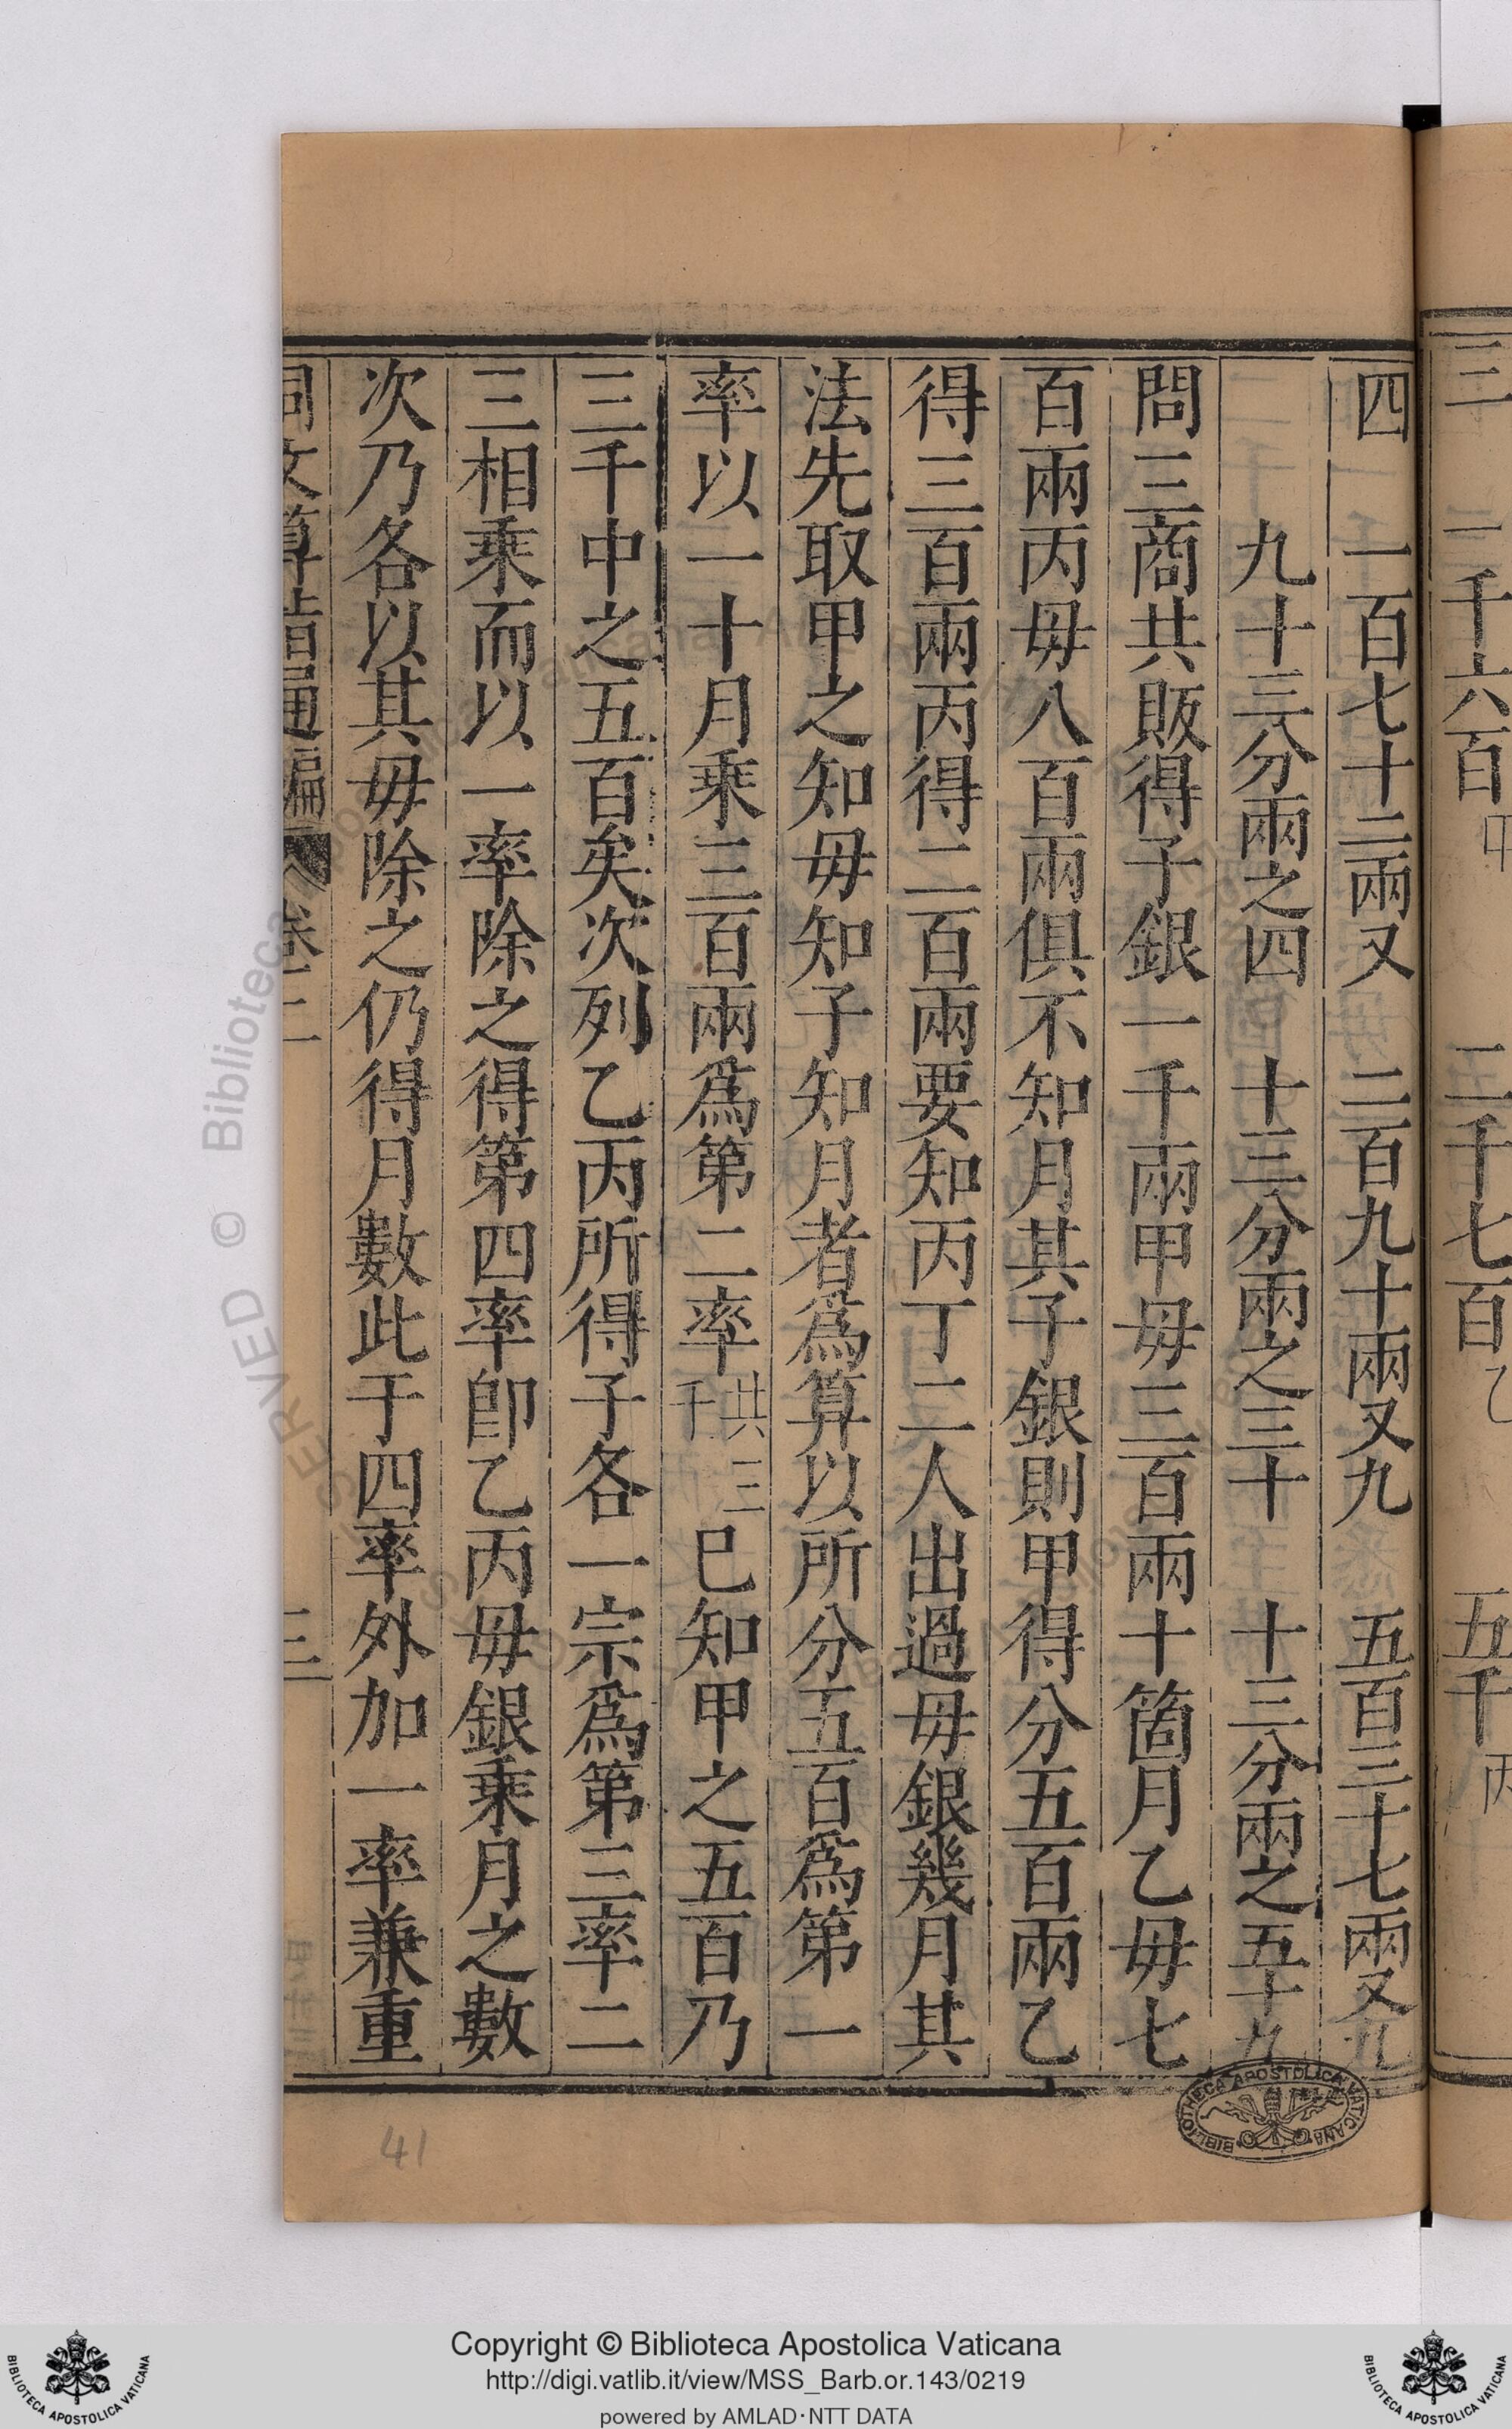 三　二千六百甲　二千七百乙　五千丙
四　一百七十二兩又　二百九十兩又九　五百三十七兩又九
九十三分兩之四　十三分兩之三十　十三分兩之五十九
問三商共販得子銀一千兩甲毋三百兩十箇月乙毋七
百兩丙毋八百兩俱不知月其子銀則甲得分五百兩乙
得三百兩丙得二百兩要知丙丁二人出過毋銀幾月其
法先取甲之知毋知子知月者爲算以所分五百爲第一
率以一十月乘三百兩爲第二率共三千巳知甲之五百乃
三千中之五百矣次列乙丙所得子各一宗爲第三率二
三相乘而以一率除之得第四率卽乙丙毋銀乘月之數
次乃各以其毋除之仍得月數此于四率外加一率兼重
同文算指通編　卷二　三
41
BIBLIOTHECA APOSTOLICA VATICANA
Copyright © Biblioteca Apostolica Vaticana
http://digi.vatlib.it/view/MSS_Barb.or.143/0219
powered by AMLAD·NTT DATA
BIBLIOTECA APOSTOLICA VATICANA
BIBLIOTECA APOSTOLICA VATICANA